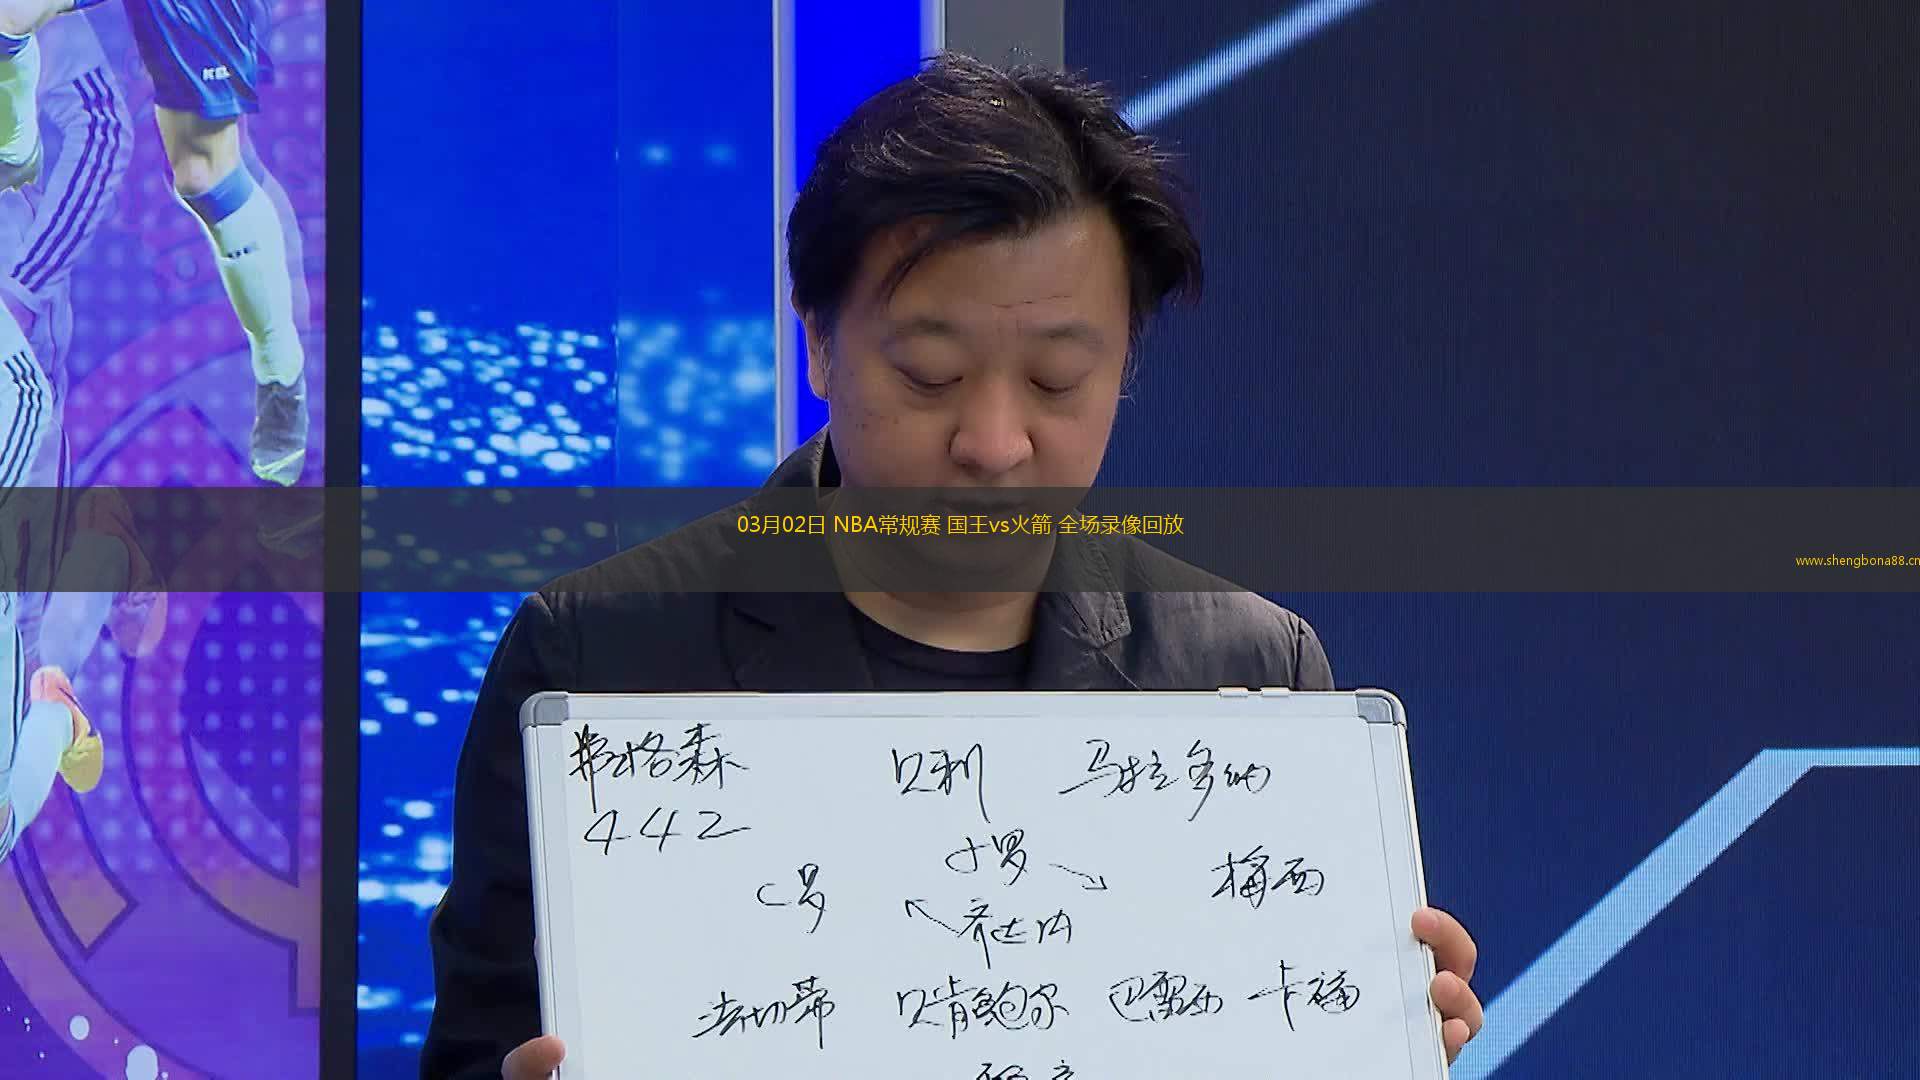 03月02日 NBA常规赛 国王vs火箭 全场录像回放
www.shengbona88.cn
弗格森 贝利 马拉多纳
442
小罗
C罗 梅西
齐达内
法切蒂 贝肯鲍尔 巴雷西 卡福